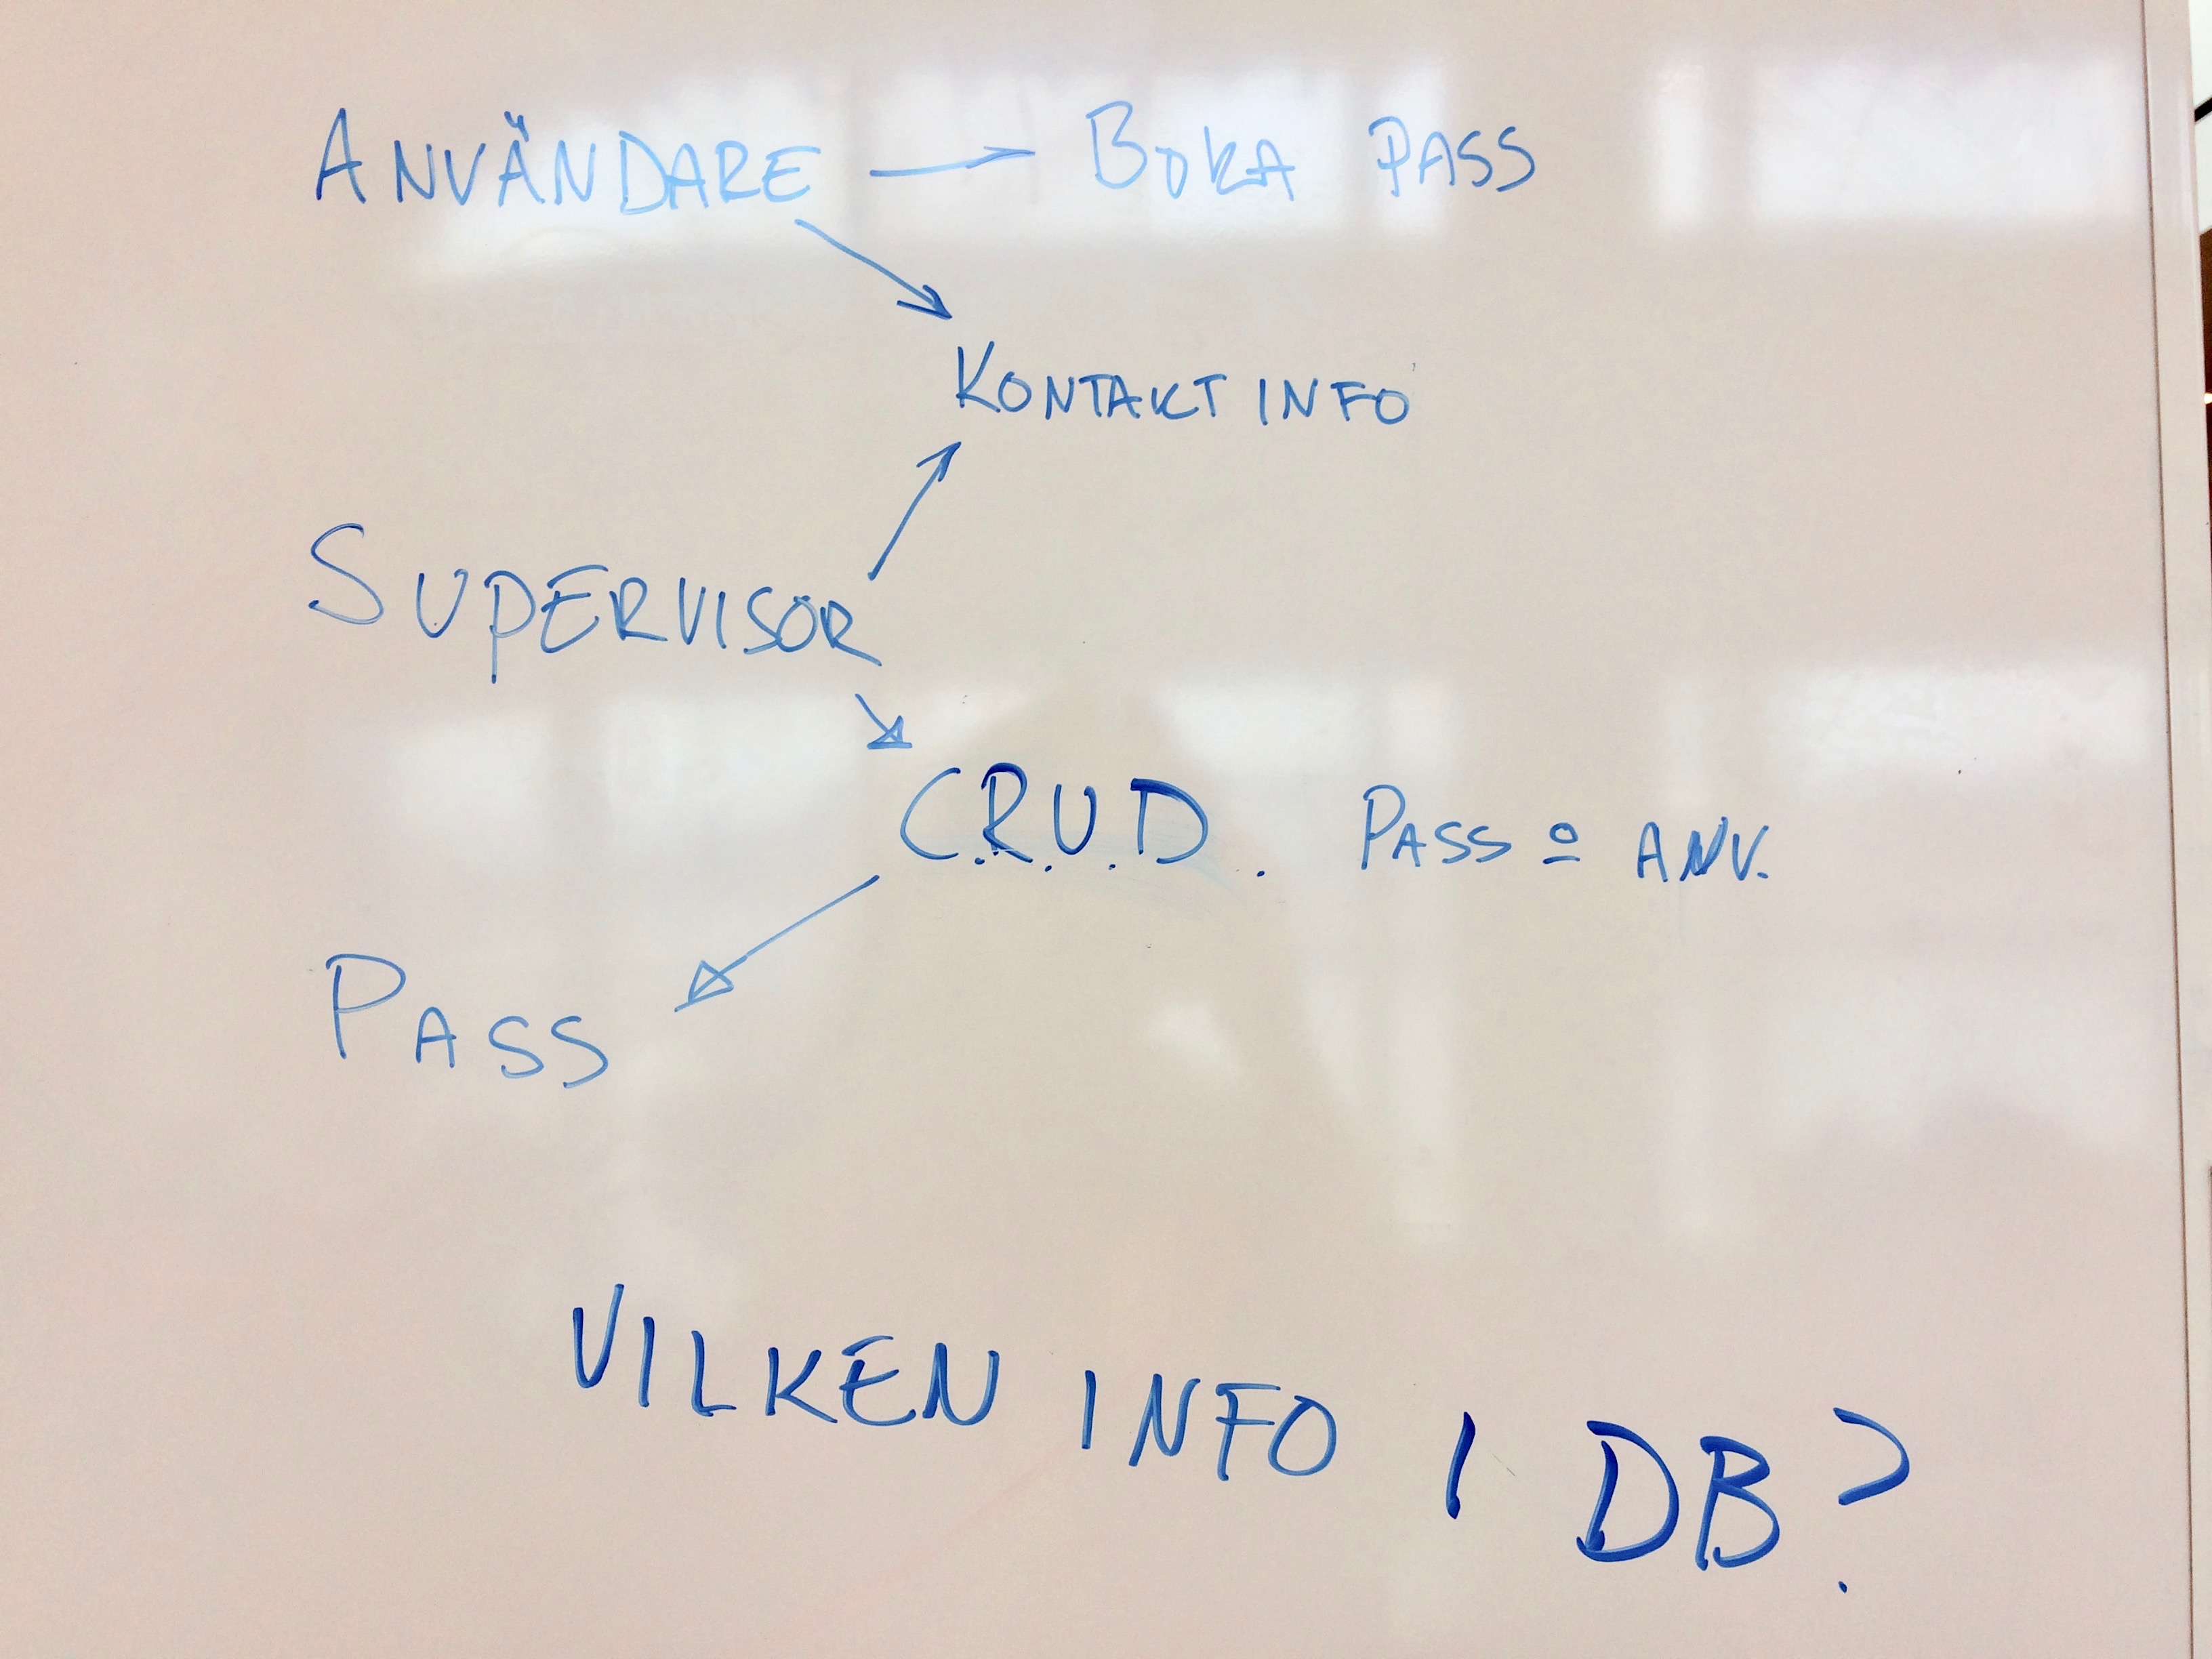 ANVÄNDARE → BOKA PASS
KONTAKT INFO
SUPERVISOR
C.R.U.D. PASS o ANV.
PASS
VILKEN INFO I DB?